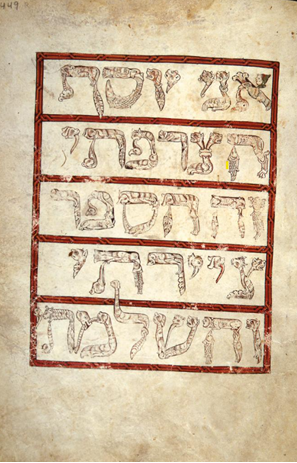 449
אני יוסף
הצרפתי
זה הספר
ציירתי
והשלמתי